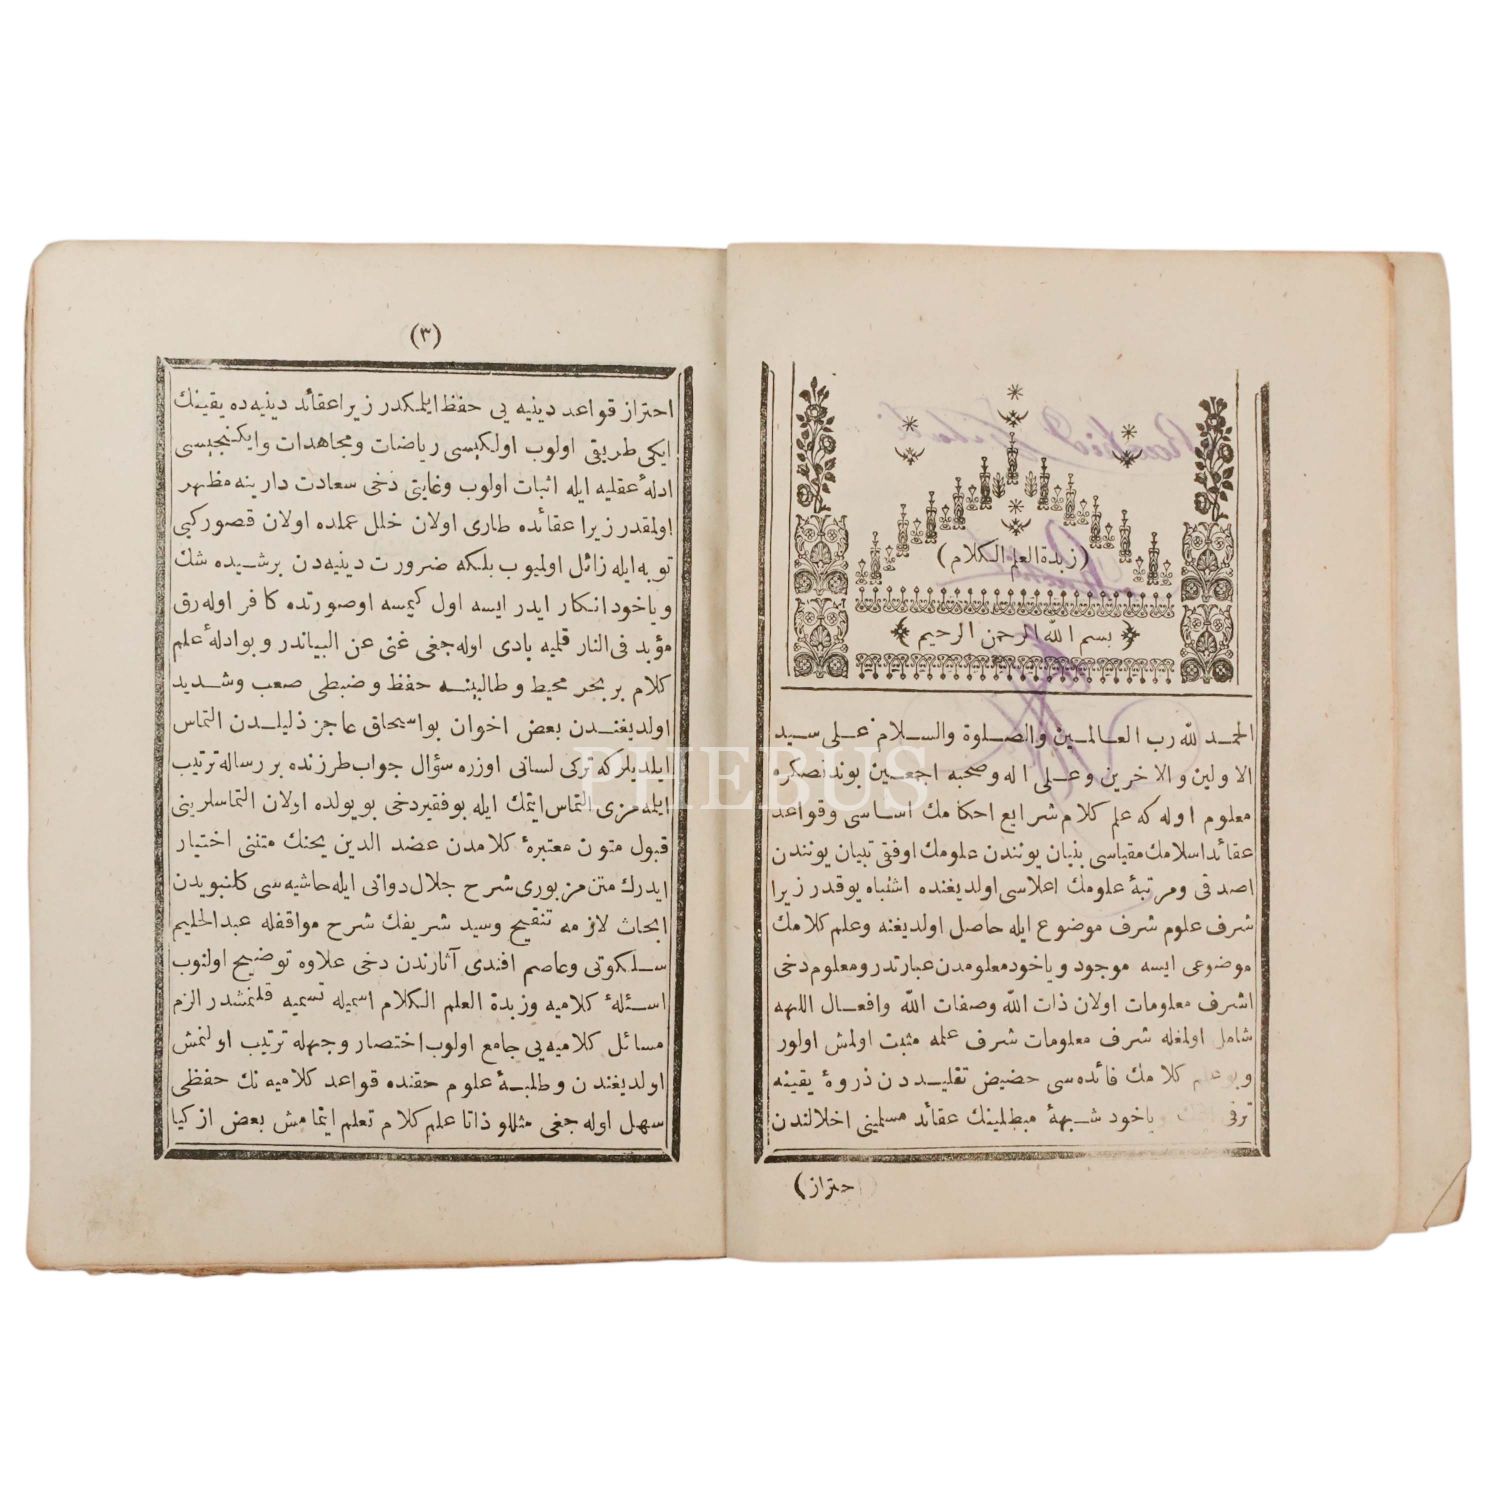 (زبدة العلم الكلام)
بسم الله الرحمن الرحيم
الحمد لله رب العالمين والصلوة والسلام على سيد
الاولين والاخرين وعلى اله وصحبه اجمعين بوندنصكره
معلوم اوله كه علم كلام شرايع احكامك اساسى وقواعد
عقائد اسلامك مقياسى بنيان يونندن علومك اوفقى تبيان يونندن
اصدقى ومرتبۀ علومك اعلاسى اولديغنده اشتباه يوقدر زيرا
شرف علوم شرف موضوع ايله حاصل اولديغنه وعلم كلامك
موضوعى ايسه موجود وياخود معلومدن عبارتدر ومعلوم دخى
اشرف معلومات اولان ذات الله وصفات الله وافعال اللهه
شامل اولمغله شرف معلومات شرف علمه مثبت اولمش اولور
وبو علم كلامك فائده سى حضيض تقليددن ذروۀ يقينه
ترقى وياخود شبهۀ مبطلينك عقائد مسلمينى اخلالندن
(احتراز)
(٣)
احتراز قواعد دينيه يى حفظ ايلمكدر زيرا عقائد دينيه ده يقينك
ايكى طريقى اولوب اولكيسى رياضات ومجاهدات وايكنجيسى
ادلۀ عقليه ايله اثبات اولوب وغايتى دخى سعادت دارينه مظهر
اولمقدر زيرا عقائده طارى اولان خلل عملده اولان قصور كبى
توبه ايله زائل اولميوب بلكه ضرورت دينيه دن برشيده شك
وياخود انكار ايدر ايسه اول كيمسه اوصورتده كافر اوله رق
مؤبد فى النار قلميه بادى اوله جغى غنى عن البياندر وبو ادلۀ علم
كلام بر بحر محيط وطالبينه حفظ وضبطى صعب وشديد
اولديغندن بعض اخوان بواسحاق عاجز ذليلدن التماس
ايلديلركه تركى لسانى اوزره سؤال جواب طرزنده بر رساله ترتيب
ايله مزى التماس ايتمك ايله بوفقير دخى بويولده اولان التماسلرينى
قبول متون معتبرۀ كلامدن عضد الدين يحنك متننى اختيار
ايدرك متن مزبورى شرح جلال دوانى ايله حاشيه سى كلنبويدن
ابحاث لازمه تنقيح وسيد شريفك شرح مواقفله عبد الحليم
سلكوتى وعاصم افندى آثارندن دخى علاوه توضيح اولنوب
اسئلۀ كلاميه وزبدة العلم الكلام اسميله تسميه قلنمشدر الزم
مسائل كلاميه يى جامع اولوب اختصار وجهله ترتيب اولنمش
اولديغندن وطلبۀ علوم حقنده قواعد كلاميه نك حفظى
سهل اوله جغى مثللو ذاتا علم كلام تعلم ايتمامش بعض ازكيا
PHEBUS